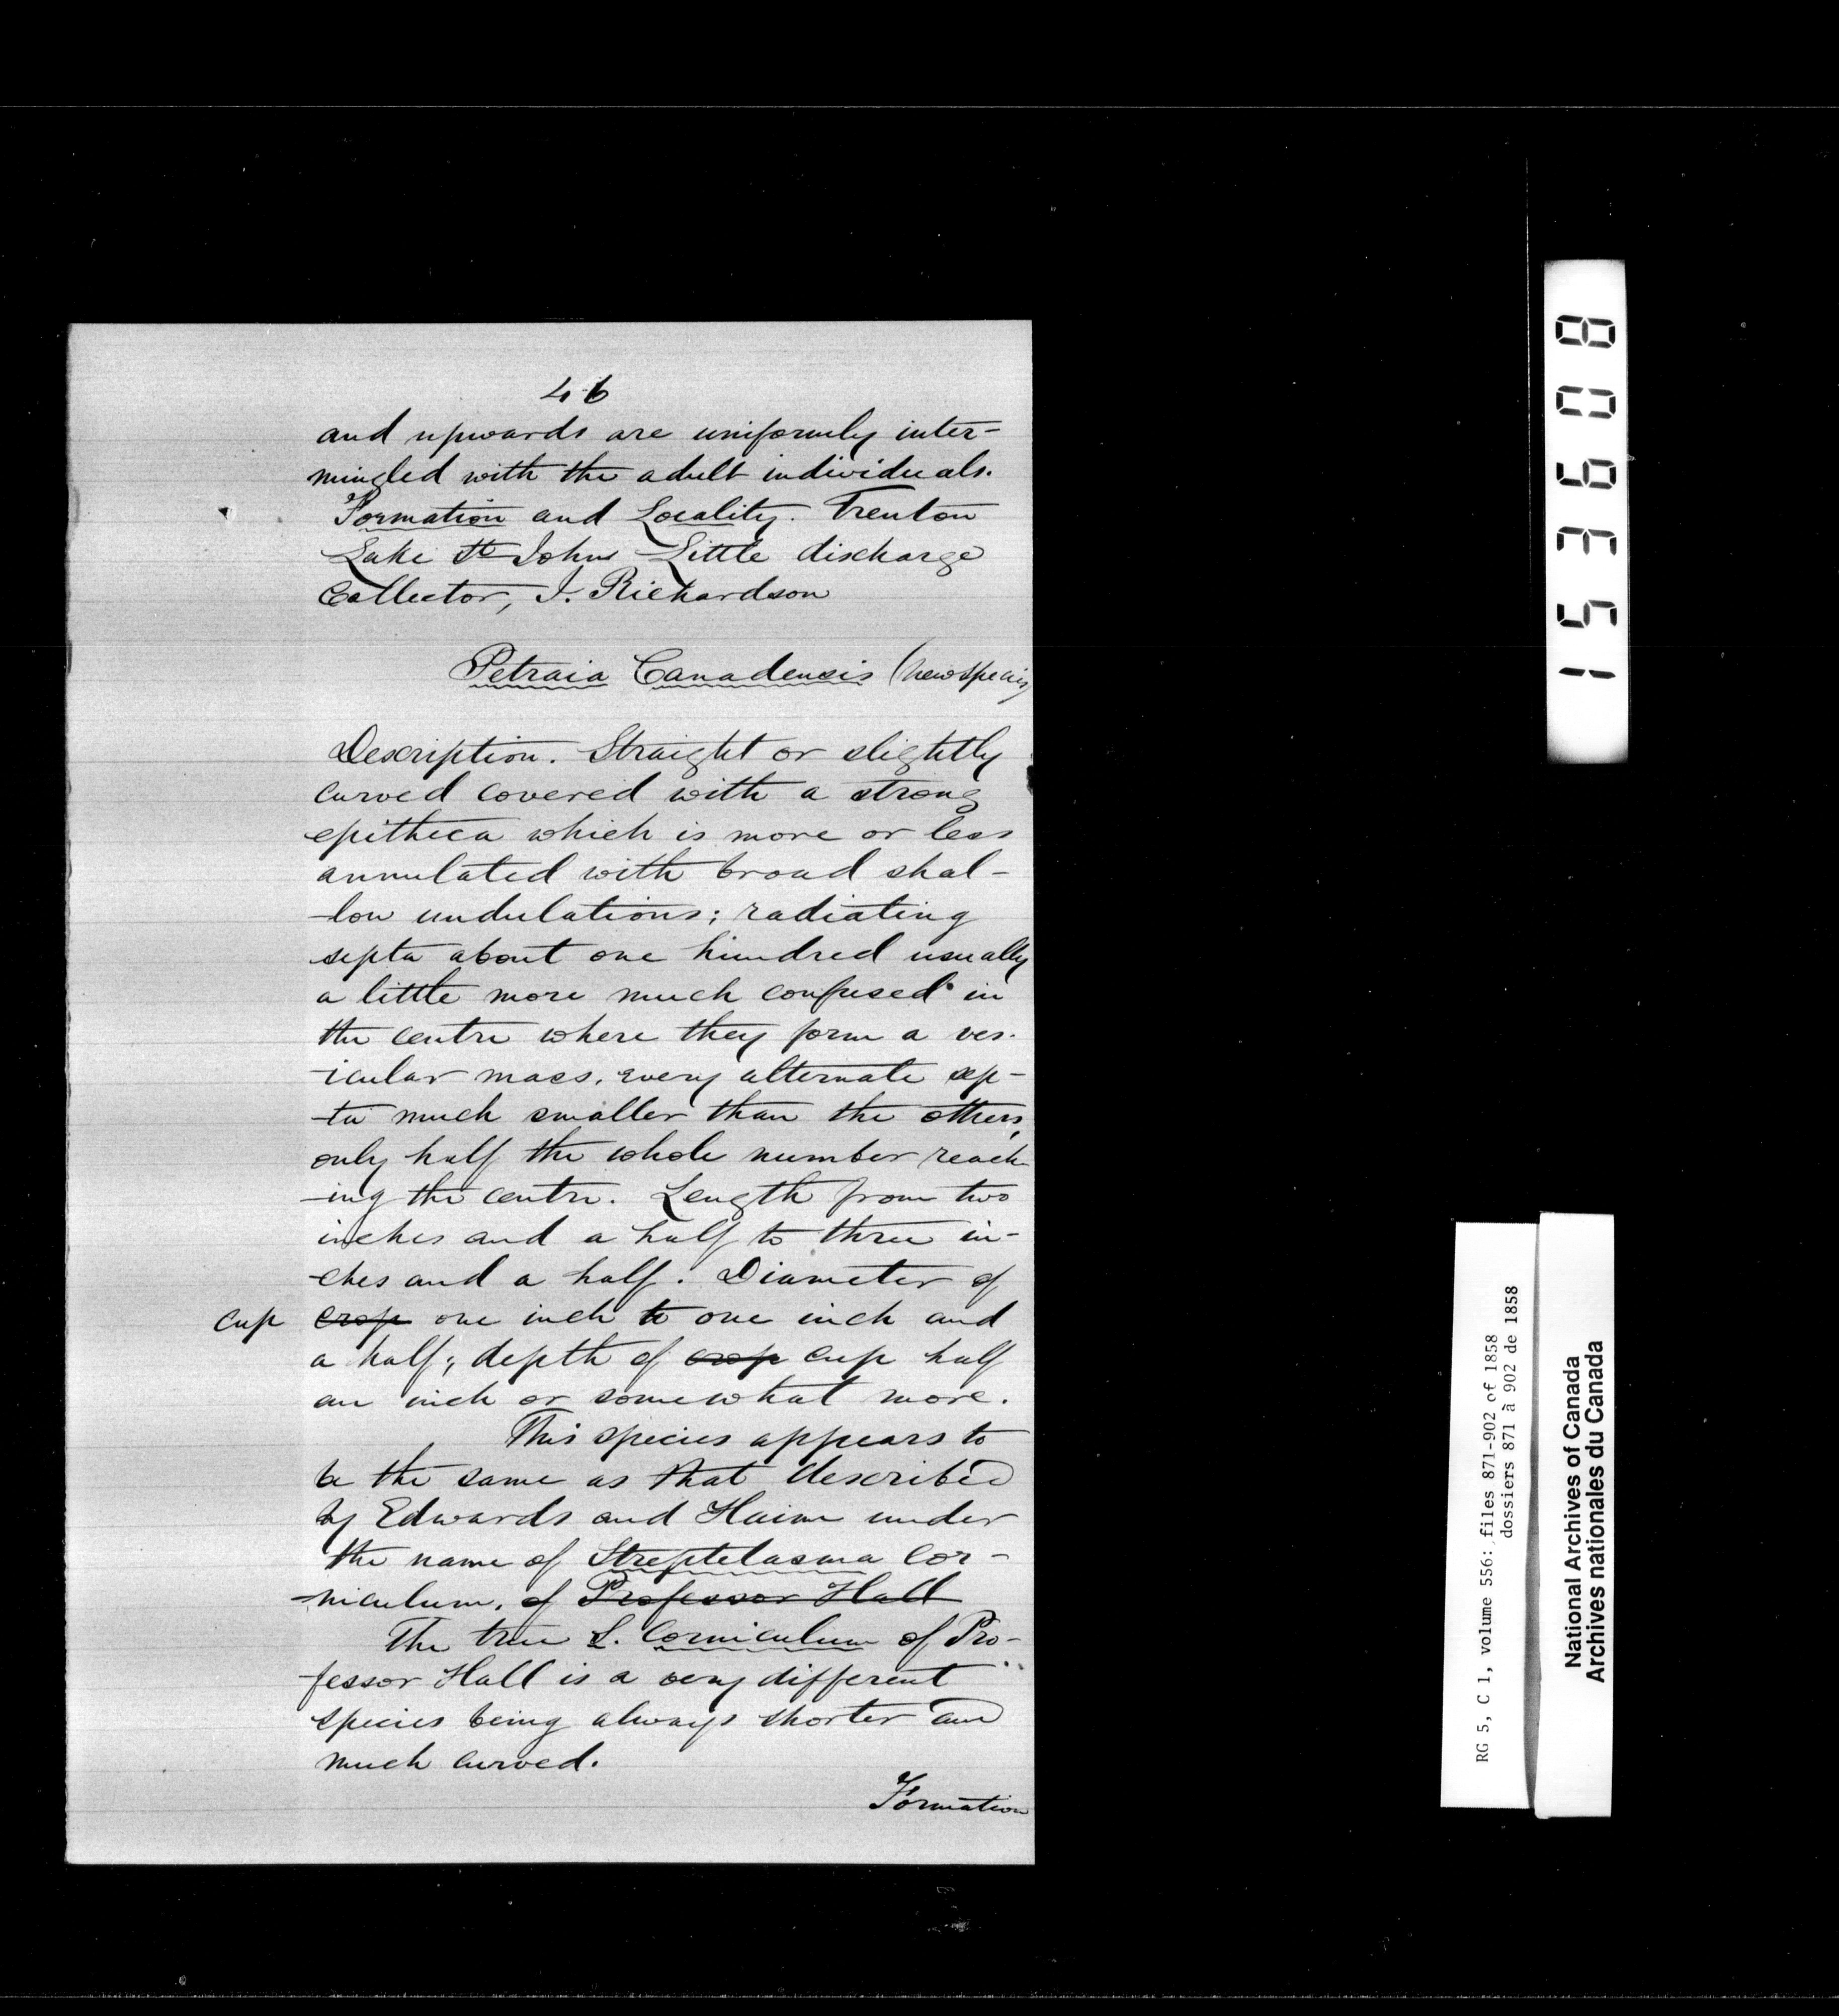 46
and upwards are uniformly inter=
mingled with the adult individuals.
Formation and Locality. Trenton
Lake St Johns Little discharge
Collector, J. Richardson
Petraia Canadensis (new species
Description. Straight or slightly
curved covered with a strong
epitheca which is more or less
annulated with broad shal-
-low undulations; radiating
septa about one hundred usually
a little more much confused in
the centre where they form a ves-
-icular mass, every alternate sep-
-ta much smaller than the others,
only half the whole number reach
-ing the centre. Length from two
inches and a half to three in-
-ches and a half. Diameter of
cup crop one inch to one inch and
a half; depth of crop cup half
an inch or somewhat more.
This species appears to
be the same as that described
by Edwards and Haime under
the name of Streptelasma Cor-
-niculum, of Professor Hall
The true S. Corniculum of Pro-
-fessor Hall is a very different
species being always shorter and
much curved.
Formation
153608
RG 5, C 1, volume 556: files 871-902 of 1858
dossiers 871 à 902 de 1858
National Archives of Canada
Archives nationales du Canada